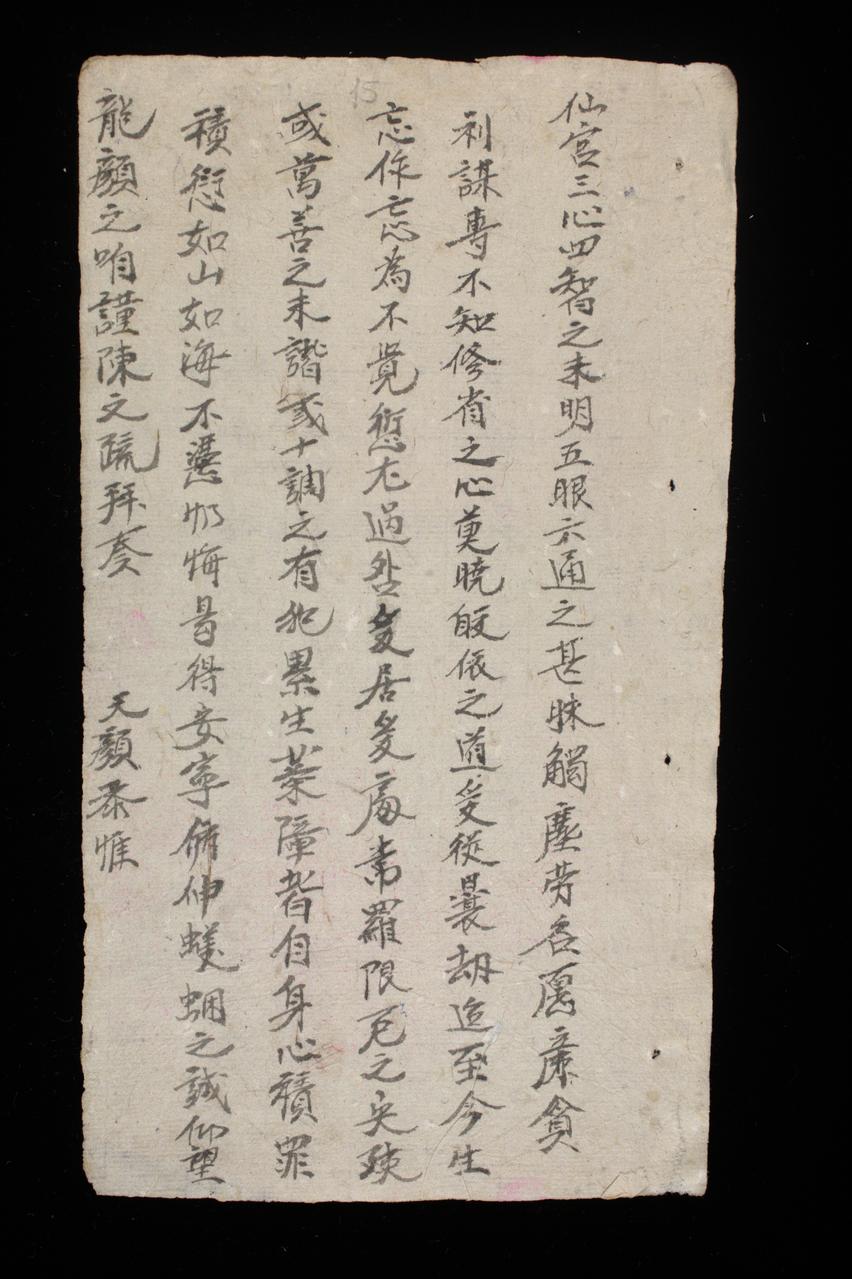 仙宮三心四智之未明五眼六通之甚昧觸塵勞名厲庶貪
利謀專不知修省之心莫曉皈依之道爰從曩劫迄至今生
忘作忘為不覺愆尤過咎爰居爰處常羅限厄之灾殃
或萬善之未諧或十調之有犯累生業障者自身心積罪
積愆如山如海不憑忉悔曷得安寧俯伸蟻蛔之誠仰望
龍顔之咱謹陳文疏拜奏 天顔恭惟
15